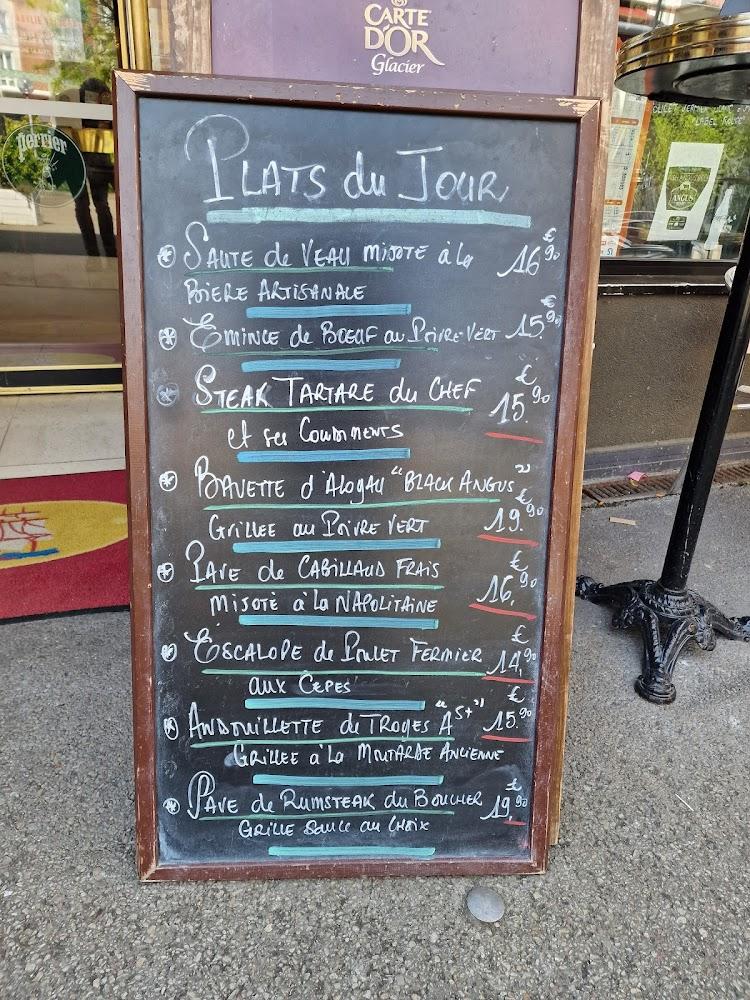 CARTE
D'OR
Glacier
perrier
ANGUS
PLATS du JOUR
SAUTE de VEAU MIJOTÉ à la 16€90
BIERE ARTISANALE
EMINCE de BŒUF au POIVRE VERT 15.€90
STEAK TARTARE du CHEF €
et ses CONDIMENTS 15.90
BAVETTE d'ALOYAU "BLACK ANGUS"
GRILLEE au POIVRE VERT 19.€90
PAVE de CABILLAUD FRAIS €
MIJOTÉ à la NAPOLITAINE 16,90
ESCALOPE de POULET FERMIER 14,€90
AUX CEPES
ANDOUILLETTE de TROYES "A5+" 15.€90
GRILLEE à la MOUTARDE ANCIENNE
PAVE de RUMSTEAK du BOUCHER 19,€90
GRILLE SAUCE au CHOIX